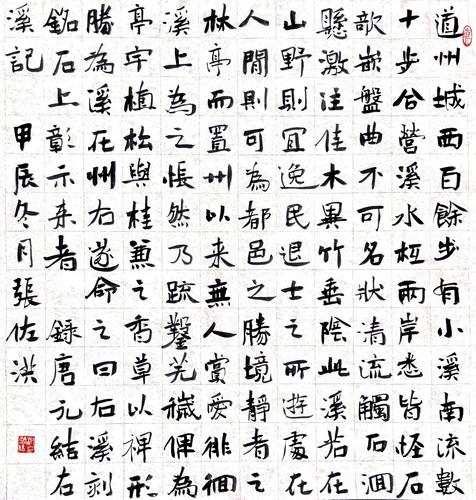 道州城西百餘步有小溪南流數
十步合營溪水抵兩岸悉皆怪石
欹嵌盤曲不可名狀清流觸石洄
懸激注佳木異竹垂陰此溪若在
山野則宜逸民退士之所遊處在
人間則可為都邑之勝境靜者之
林亭而置州以來無人賞愛徘徊
溪上為之悵然乃疏鑿芜穢俾為
亭宇植松與桂兼之香草以裨形
勝為溪在州右遂命之曰右溪刻
銘石上彰示来者 錄唐元結右
溪記 甲辰冬月張佐洪